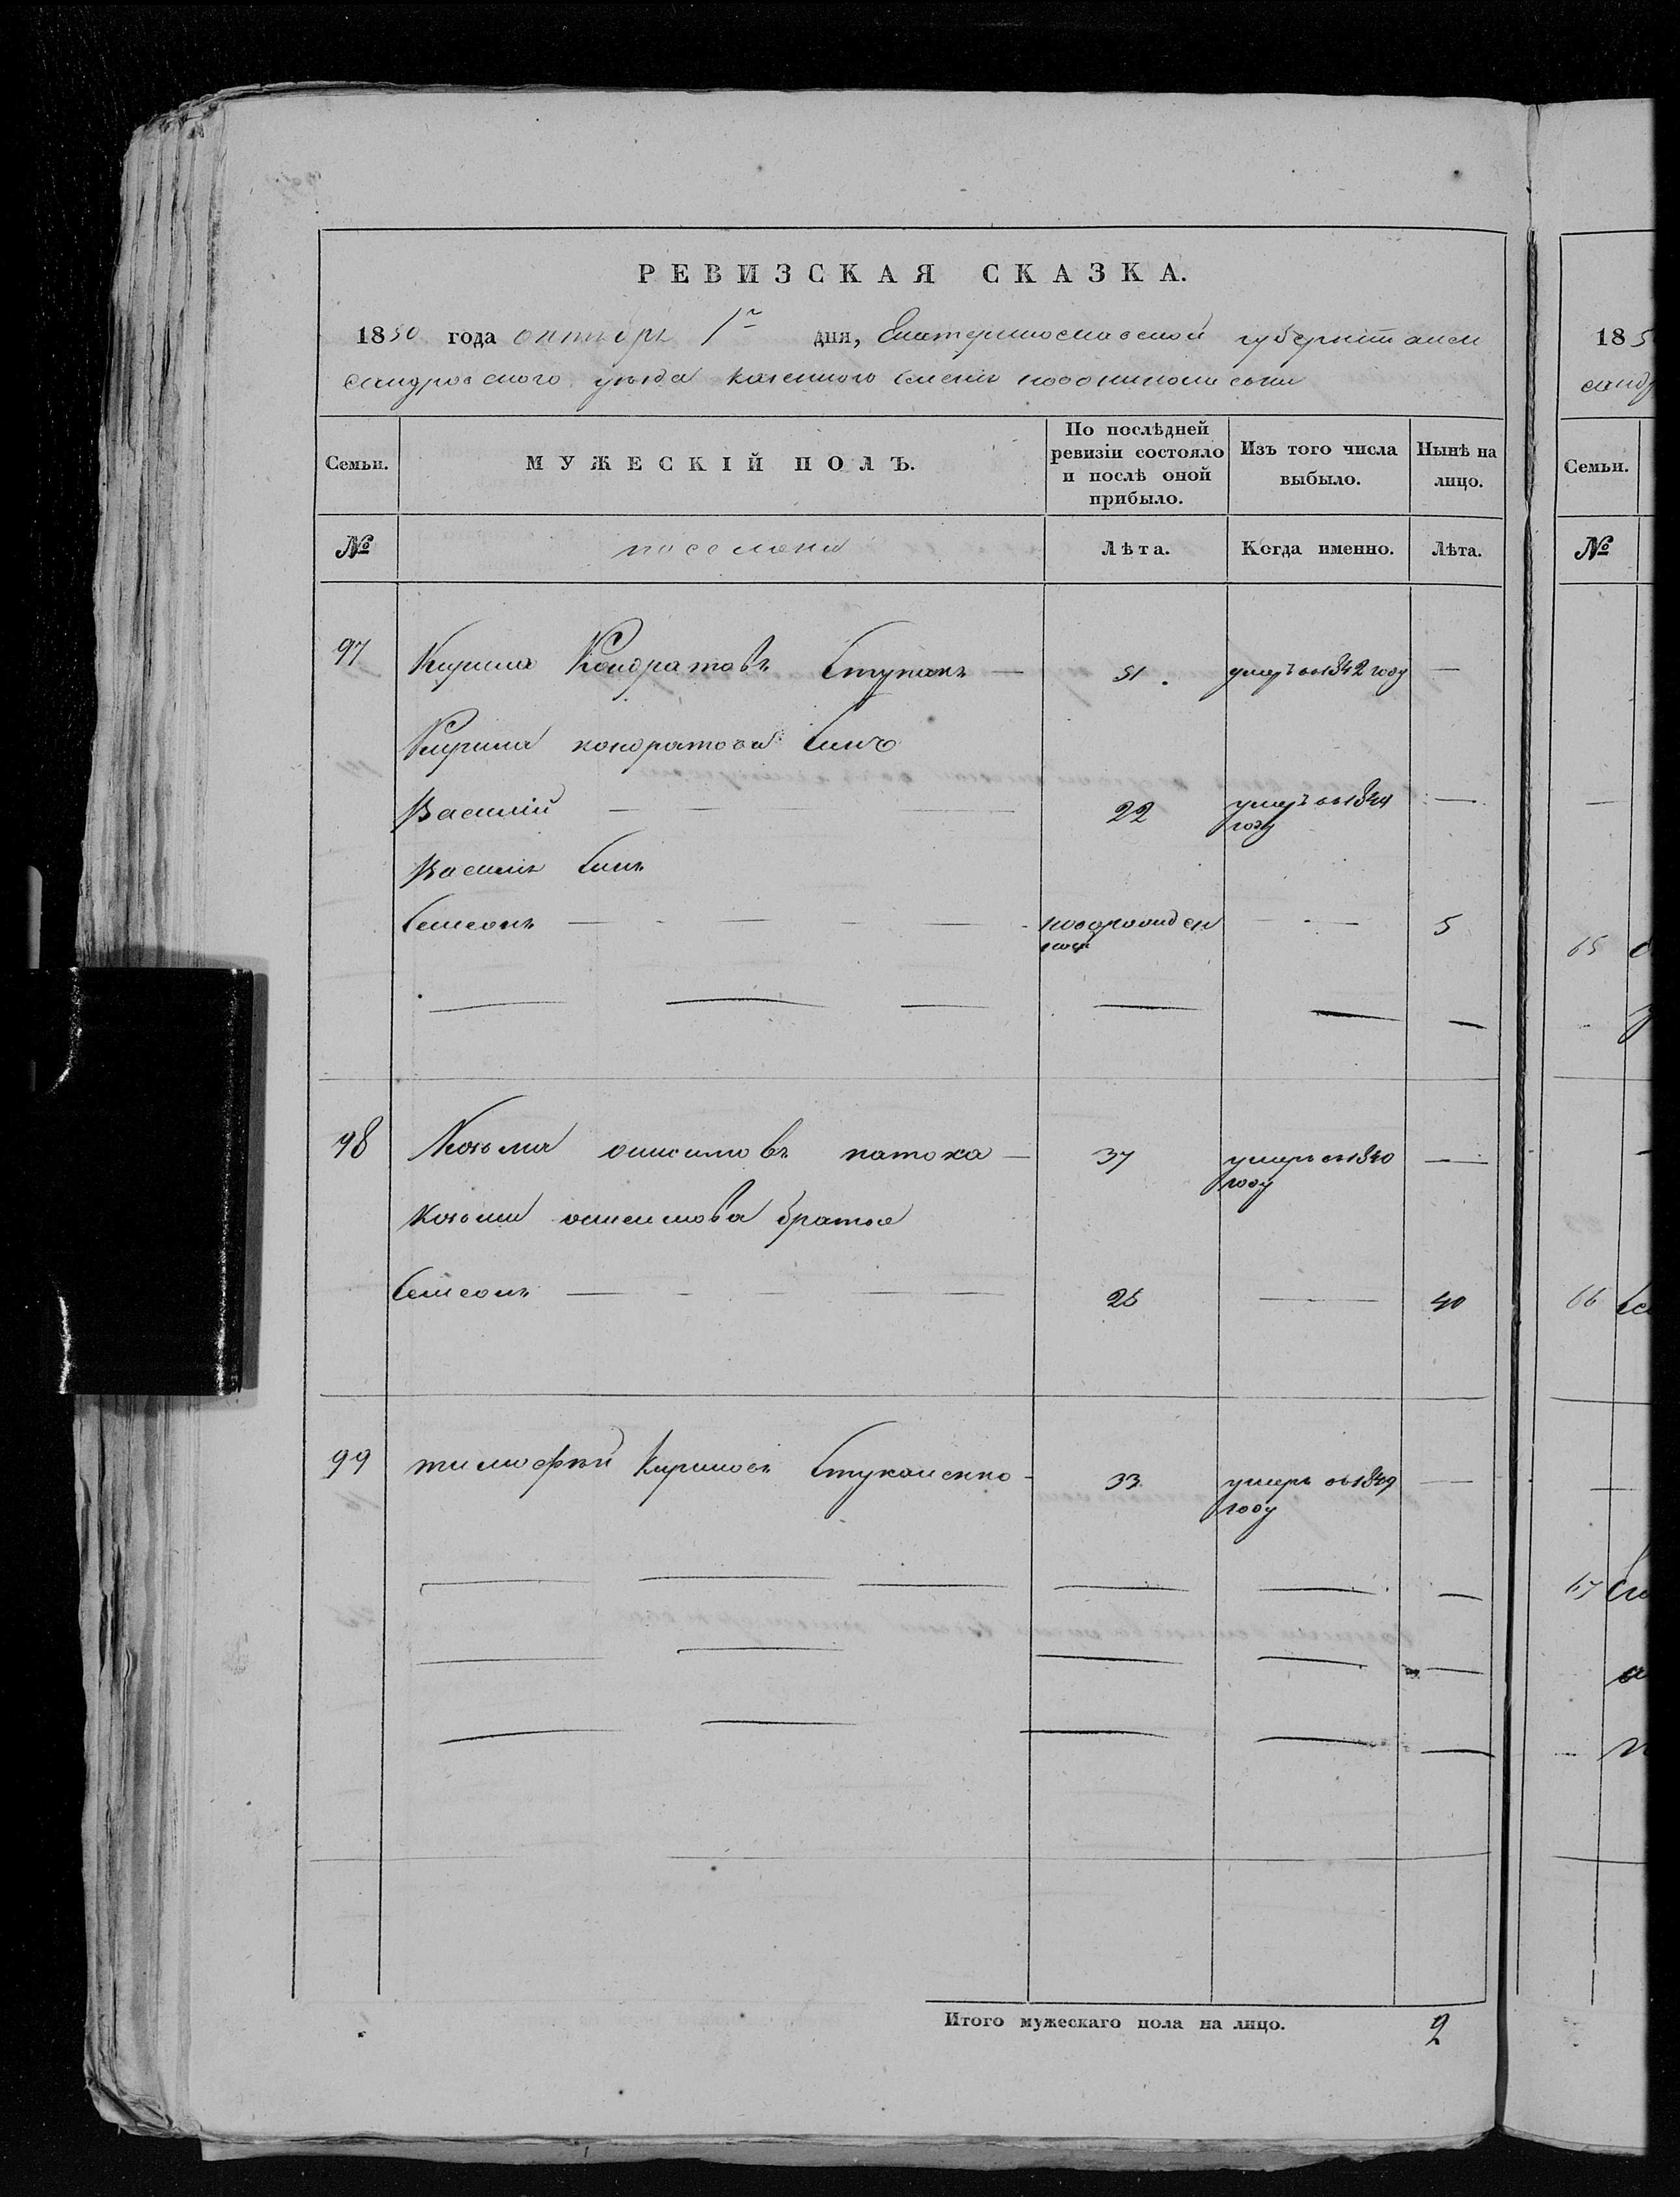 РЕВИЗСКАЯ СКАЗКА.
1850 года октября 1го дня, Екатеринославской губерніи алек
сандровского уезда казенного селенія новониколаевки
Семьи. МУЖЕСКІЙ ПОЛЪ. По послѣдней ревизіи состояло и послѣ оной прибыло. Изъ того числа выбыло. Нынѣ на лицо.
№ поселяне Лѣта. Когда именно. Лѣта.
97 Кирило Кондратовъ Ступакъ — 51. умеръ въ 1842 году —
Кирила кондратова Сынъ
Василий — 22 умеръ въ 1844 году —
Василія Сынъ
Семеонъ — новорожден — 5
98 Козьма онисимовъ патока — 37 умеръ въ 1840 году —
Козьми онисимова братья
Семеонъ — 25 — 40
99 тимофей Кирилов Стукаленко - 33 умеръ въ 1849 году —
Итого мужескаго пола на лицо. 2
185
санд
Семьи.
№
65
66
67